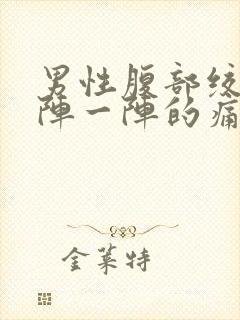 男性腹部绞
陣一陣的痛
金莱特